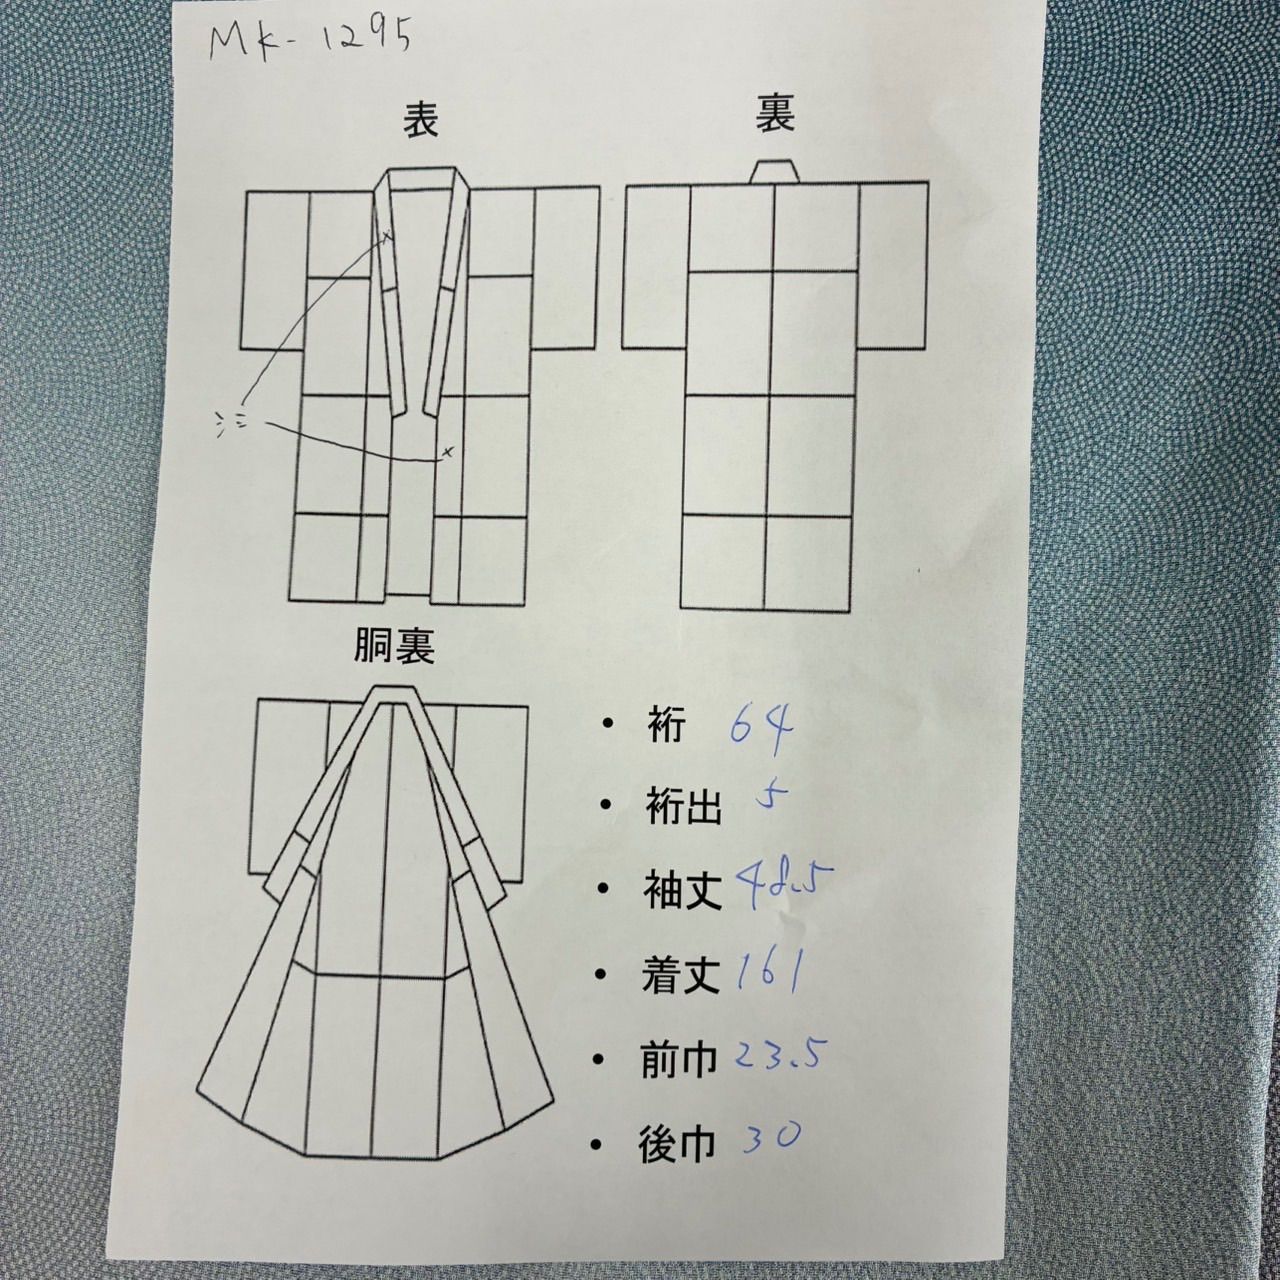 MK-1295
表
裏
シミ
胴裏
・裄 64
・裄出 5
・袖丈 48.5
・着丈 161
・前巾 23.5
・後巾 30